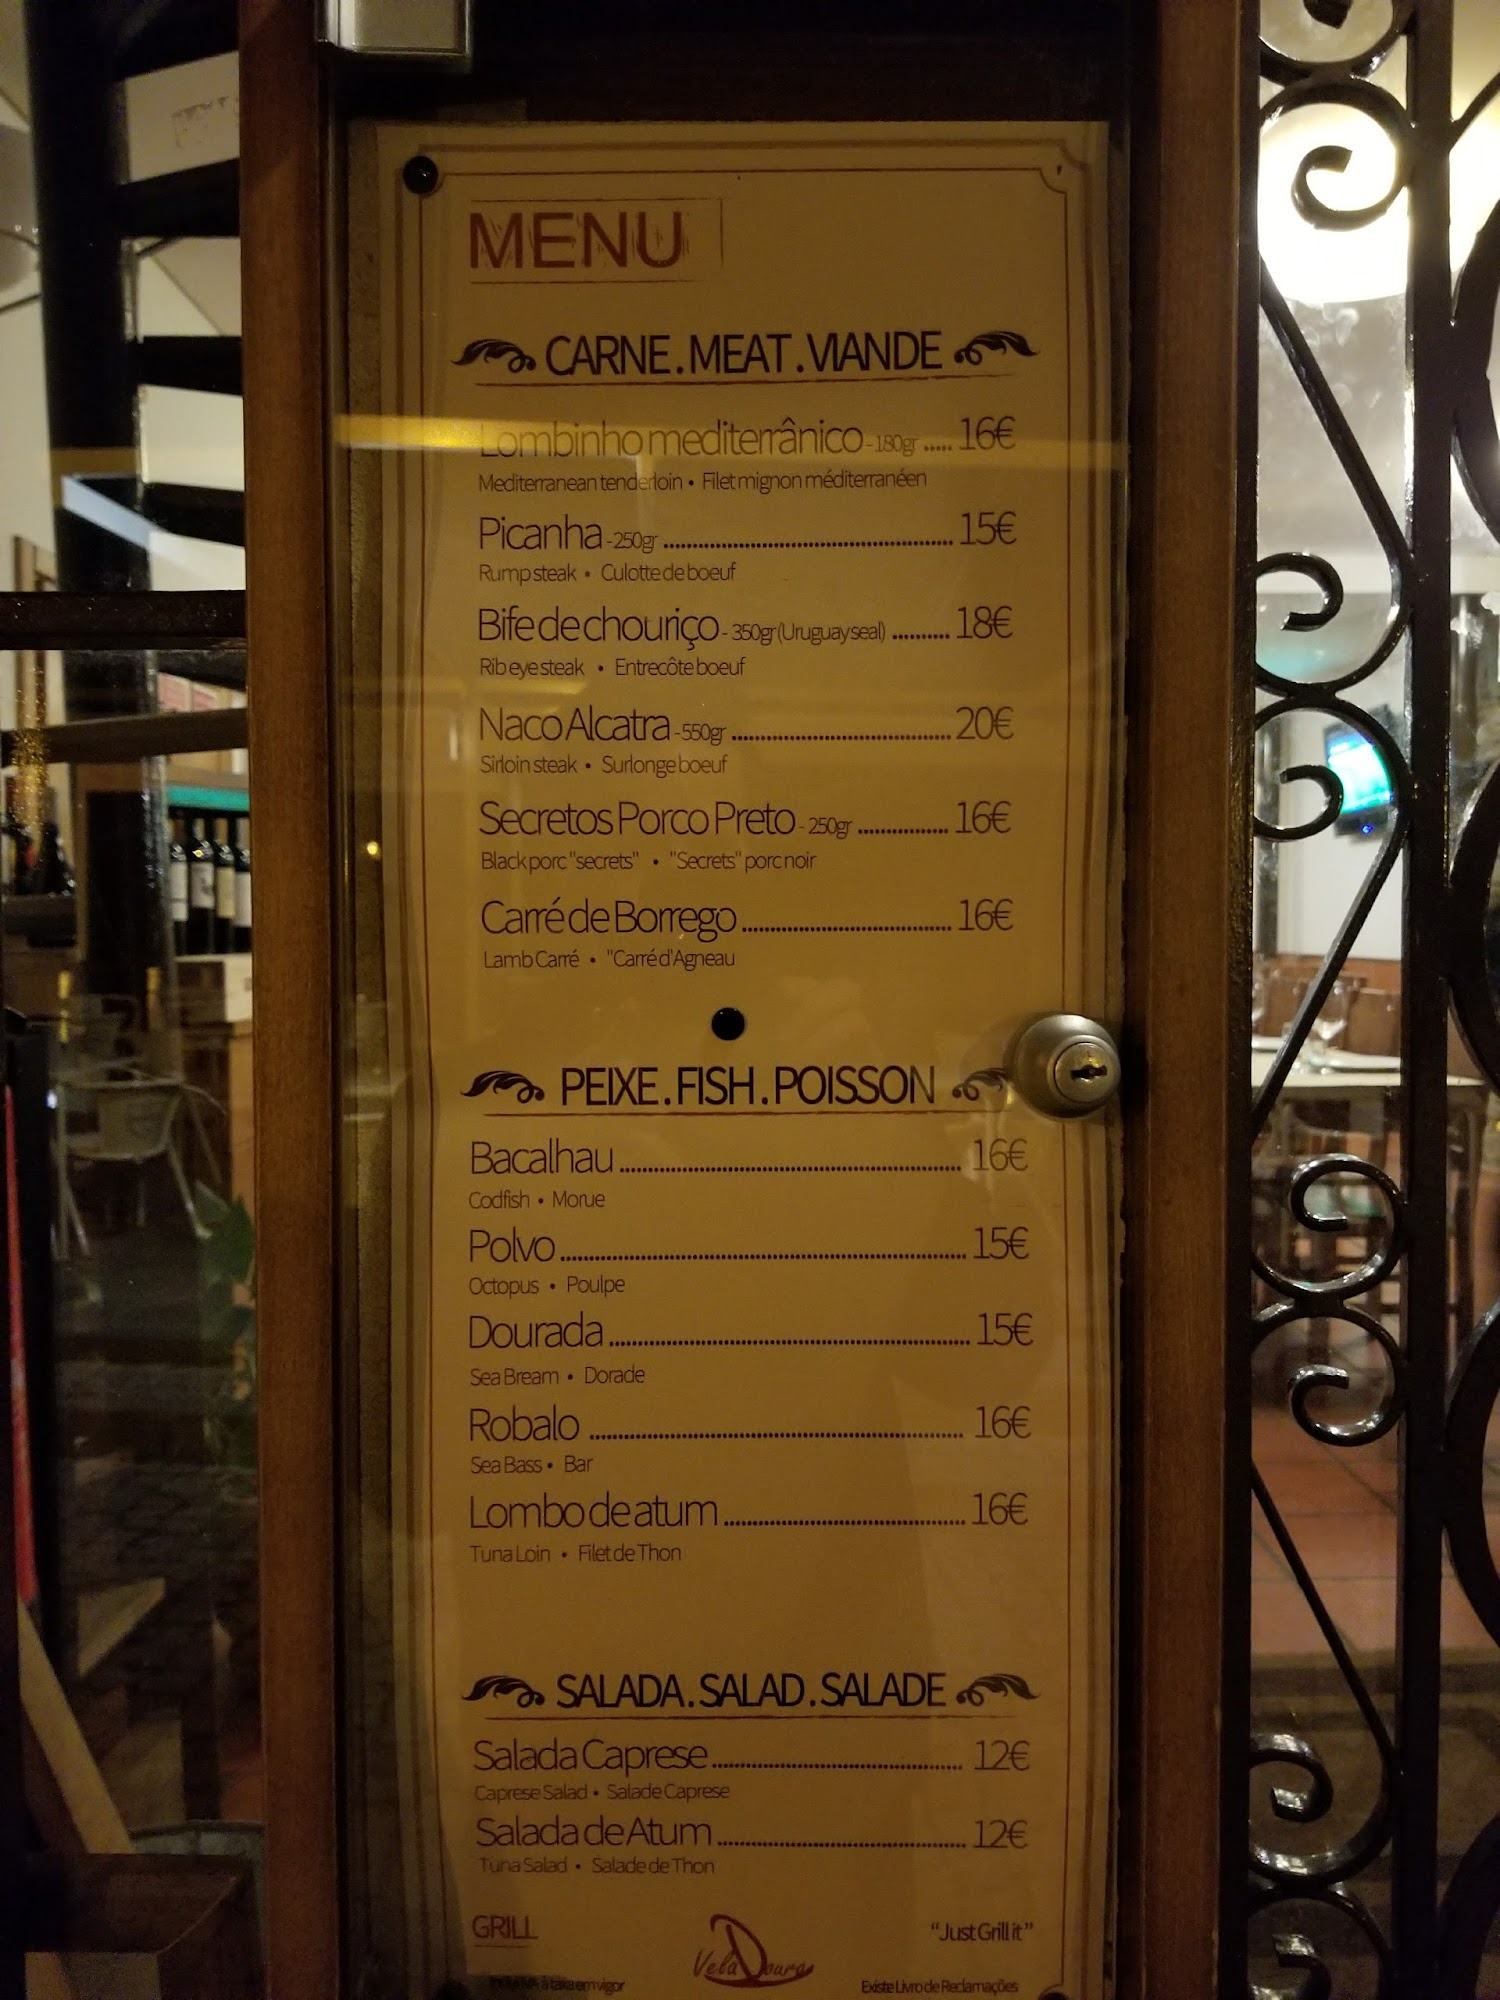 MENU
CARNE.MEAT.VIANDE
Lombinho mediterrânico - 180gr ..... 16€
Mediterranean tenderloin • Filet mignon méditerranéen
Picanha - 250gr ..... 15€
Rump steak • Culotte de boeuf
Bife de chouriço - 350gr (Uruguay seal) ..... 18€
Rib eye steak • Entrecôte boeuf
Naco Alcatra - 550gr ..... 20€
Sirloin steak • Surlonge boeuf
Secretos Porco Preto - 250gr ..... 16€
Black porc "secrets" • "Secrets" porc noir
Carré de Borrego ..... 16€
Lamb Carré • "Carré d'Agneau
PEIXE.FISH.POISSON
Bacalhau ..... 16€
Codfish • Morue
Polvo ..... 15€
Octopus • Poulpe
Dourada ..... 15€
Sea Bream • Dorade
Robalo ..... 16€
Sea Bass • Bar
Lombo de atum ..... 16€
Tuna Loin • Filet de Thon
SALADA.SALAD.SALADE
Salada Caprese ..... 12€
Caprese Salad • Salade Caprese
Salada de Atum ..... 12€
Tuna Salad • Salade de Thon
GRILL
Vela Douro
"Just Grill it"
à taxa em vigor
Existe Livro de Reclamações